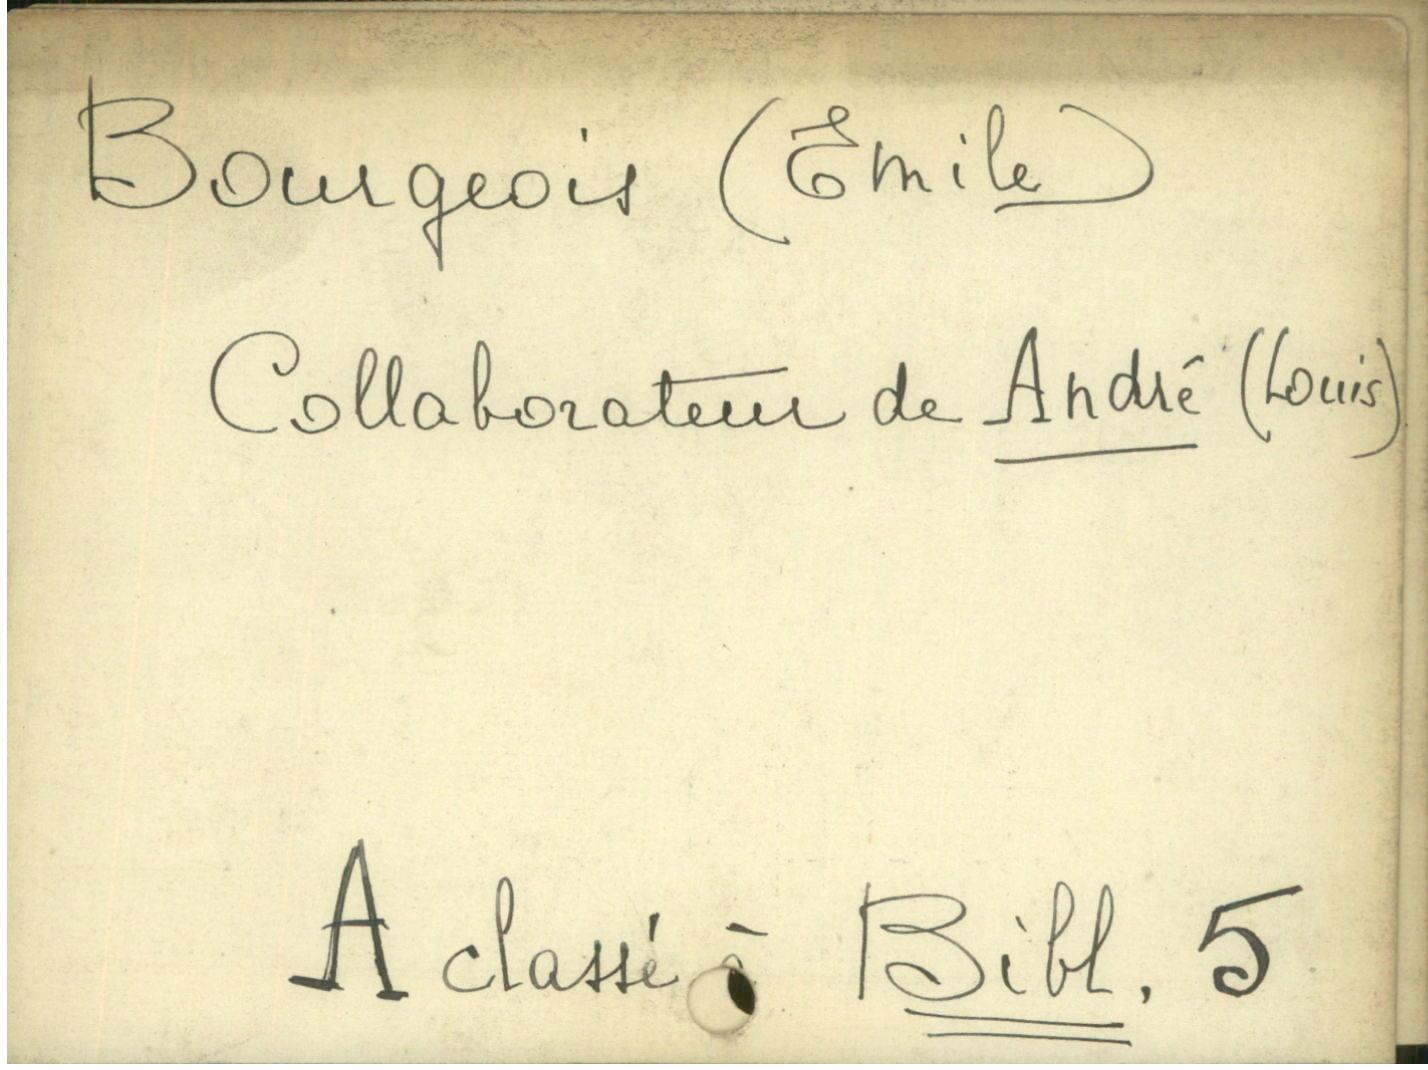 Bourgeois (Emile)
Collaborateur de André (Louis)
A classé à Bibl. 5